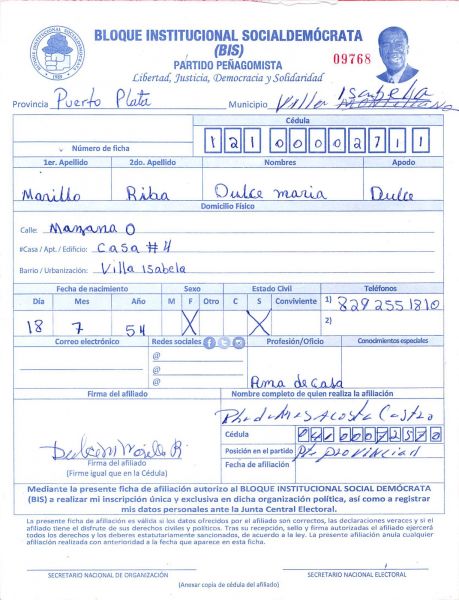 BLOQUE INSTITUCIONAL SOCIALDEMÓCRATA
(BIS)
PARTIDO PEÑAGOMISTA
Libertad, Justicia, Democracia y Solidaridad
09768
Provincia Puerto Plata Municipio Villa Isabela
Cédula
Número de ficha 12100002711
1er. Apellido 2do. Apellido Nombres Apodo
Morillo Riba Dulce maria Dulce
Domicilio Físico
Calle: Manzana O
#Casa / Apt. / Edificio: Casa #4
Barrio / Urbanización: Villa Isabela
Fecha de nacimiento Sexo Estado Civil Teléfonos
Día Mes Año M F Otro C S Conviviente 1) 829 255 1810
18 7 54 X X 2)
Correo electrónico Redes sociales Profesión/Oficio Conocimientos especiales
@
@
@ Ama de casa
Firma del afiliado Nombre completo de quien realiza la afiliación
Acosta Castro
Cédula 04100072570
Posición en el partido Pte provincial
Fecha de afiliación
Dulce M Morillo R.
Firma del afiliado
(Firme igual que en la Cédula)
Mediante la presente ficha de afiliación autorizo al BLOQUE INSTITUCIONAL SOCIAL DEMÓCRATA
(BIS) a realizar mi inscripción única y exclusiva en dicha organización política, así como a registrar
mis datos personales ante la Junta Central Electoral.
La presente ficha de afiliación es válida si los datos ofrecidos por el afiliado son correctos, las declaraciones veraces y si el
afiliado tiene el disfrute de sus derechos civiles y políticos. Tras su recepción, sello y firma autorizadas el afiliado ejercerá
todos los derechos y los deberes estatutariamente sancionados, de acuerdo a la ley. La presente afiliación anula cualquier
afiliación realizada con anterioridad a la fecha que aparece en esta ficha.
SECRETARIO NACIONAL DE ORGANIZACIÓN SECRETARIO NACIONAL ELECTORAL
(Anexar copia de cédula del afiliado)